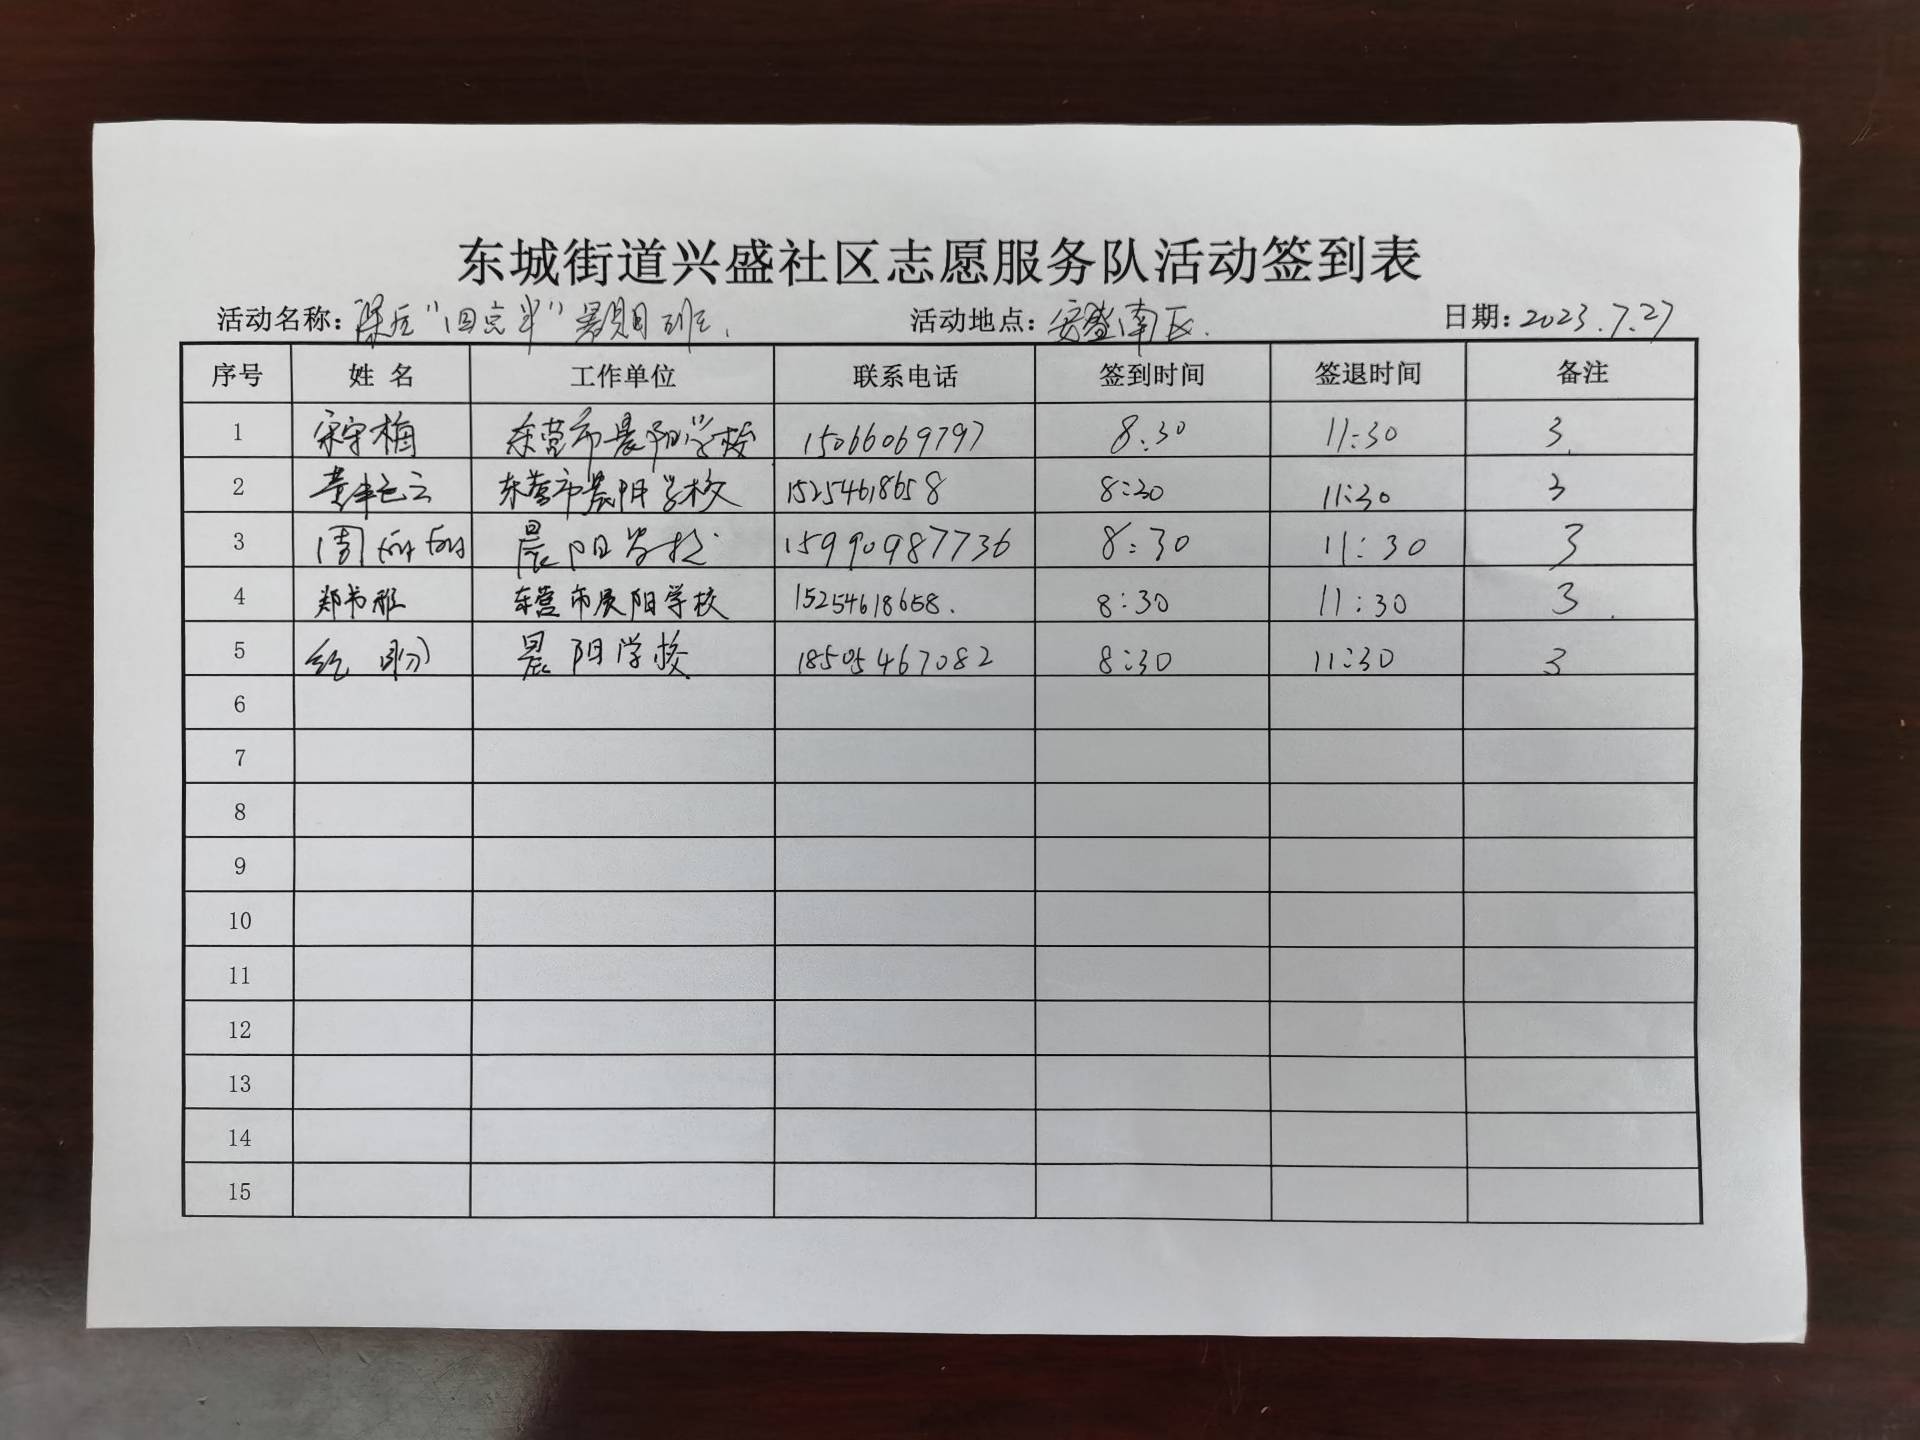 东城街道兴盛社区志愿服务队活动签到表
活动名称：课后“四点半”暑期班. 活动地点：安盛南区. 日期：2023.7.27
序号 姓名 工作单位 联系电话 签到时间 签退时间 备注
1 宋守梅 东营市晨阳学校 15066069797 8:30 11:30 3
2 东营市晨阳学校 15254618658 8:30 11:30 3
3 周 晨阳学校 15990987736 8:30 11:30 3
4 郑书雅 东营市晨阳学校 15254618658. 8:30 11:30 3
5 纪 晨阳学校 18505467082 8:30 11:30 3
6
7
8
9
10
11
12
13
14
15